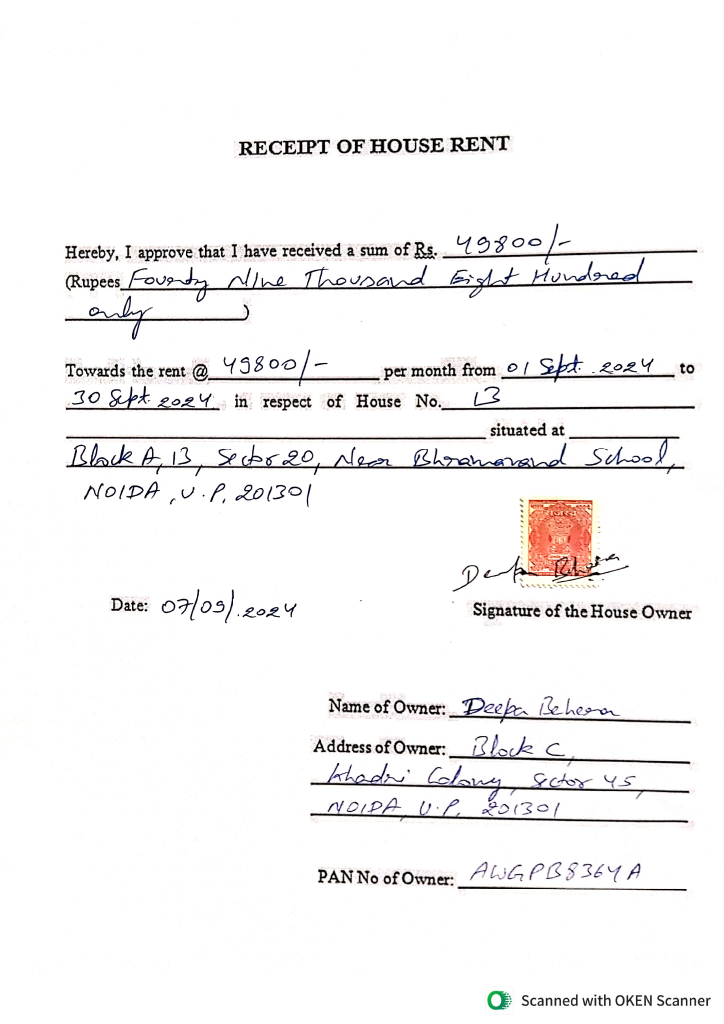 RECEIPT OF HOUSE RENT
Hereby, I approve that I have received a sum of Rs. 49800/-
(Rupees Fourty Nine Thousand Eight Hundred
only )
Towards the rent @ 49800/- per month from 01 Sept. 2024 to
30 Sept 2024 in respect of House No. 13
situated at
Block A, 13, Sector 20, Near Bhramanand School,
NOIDA, U.P, 201301
Deepa Behera
Date: 07/09/.2024
Signature of the House Owner
Name of Owner: Deepa Behera
Address of Owner: Block C,
Khadri Colony, Sector 45,
NOIDA, U.P. 201301
PAN No of Owner: AWGPB8364A
Scanned with OKEN Scanner